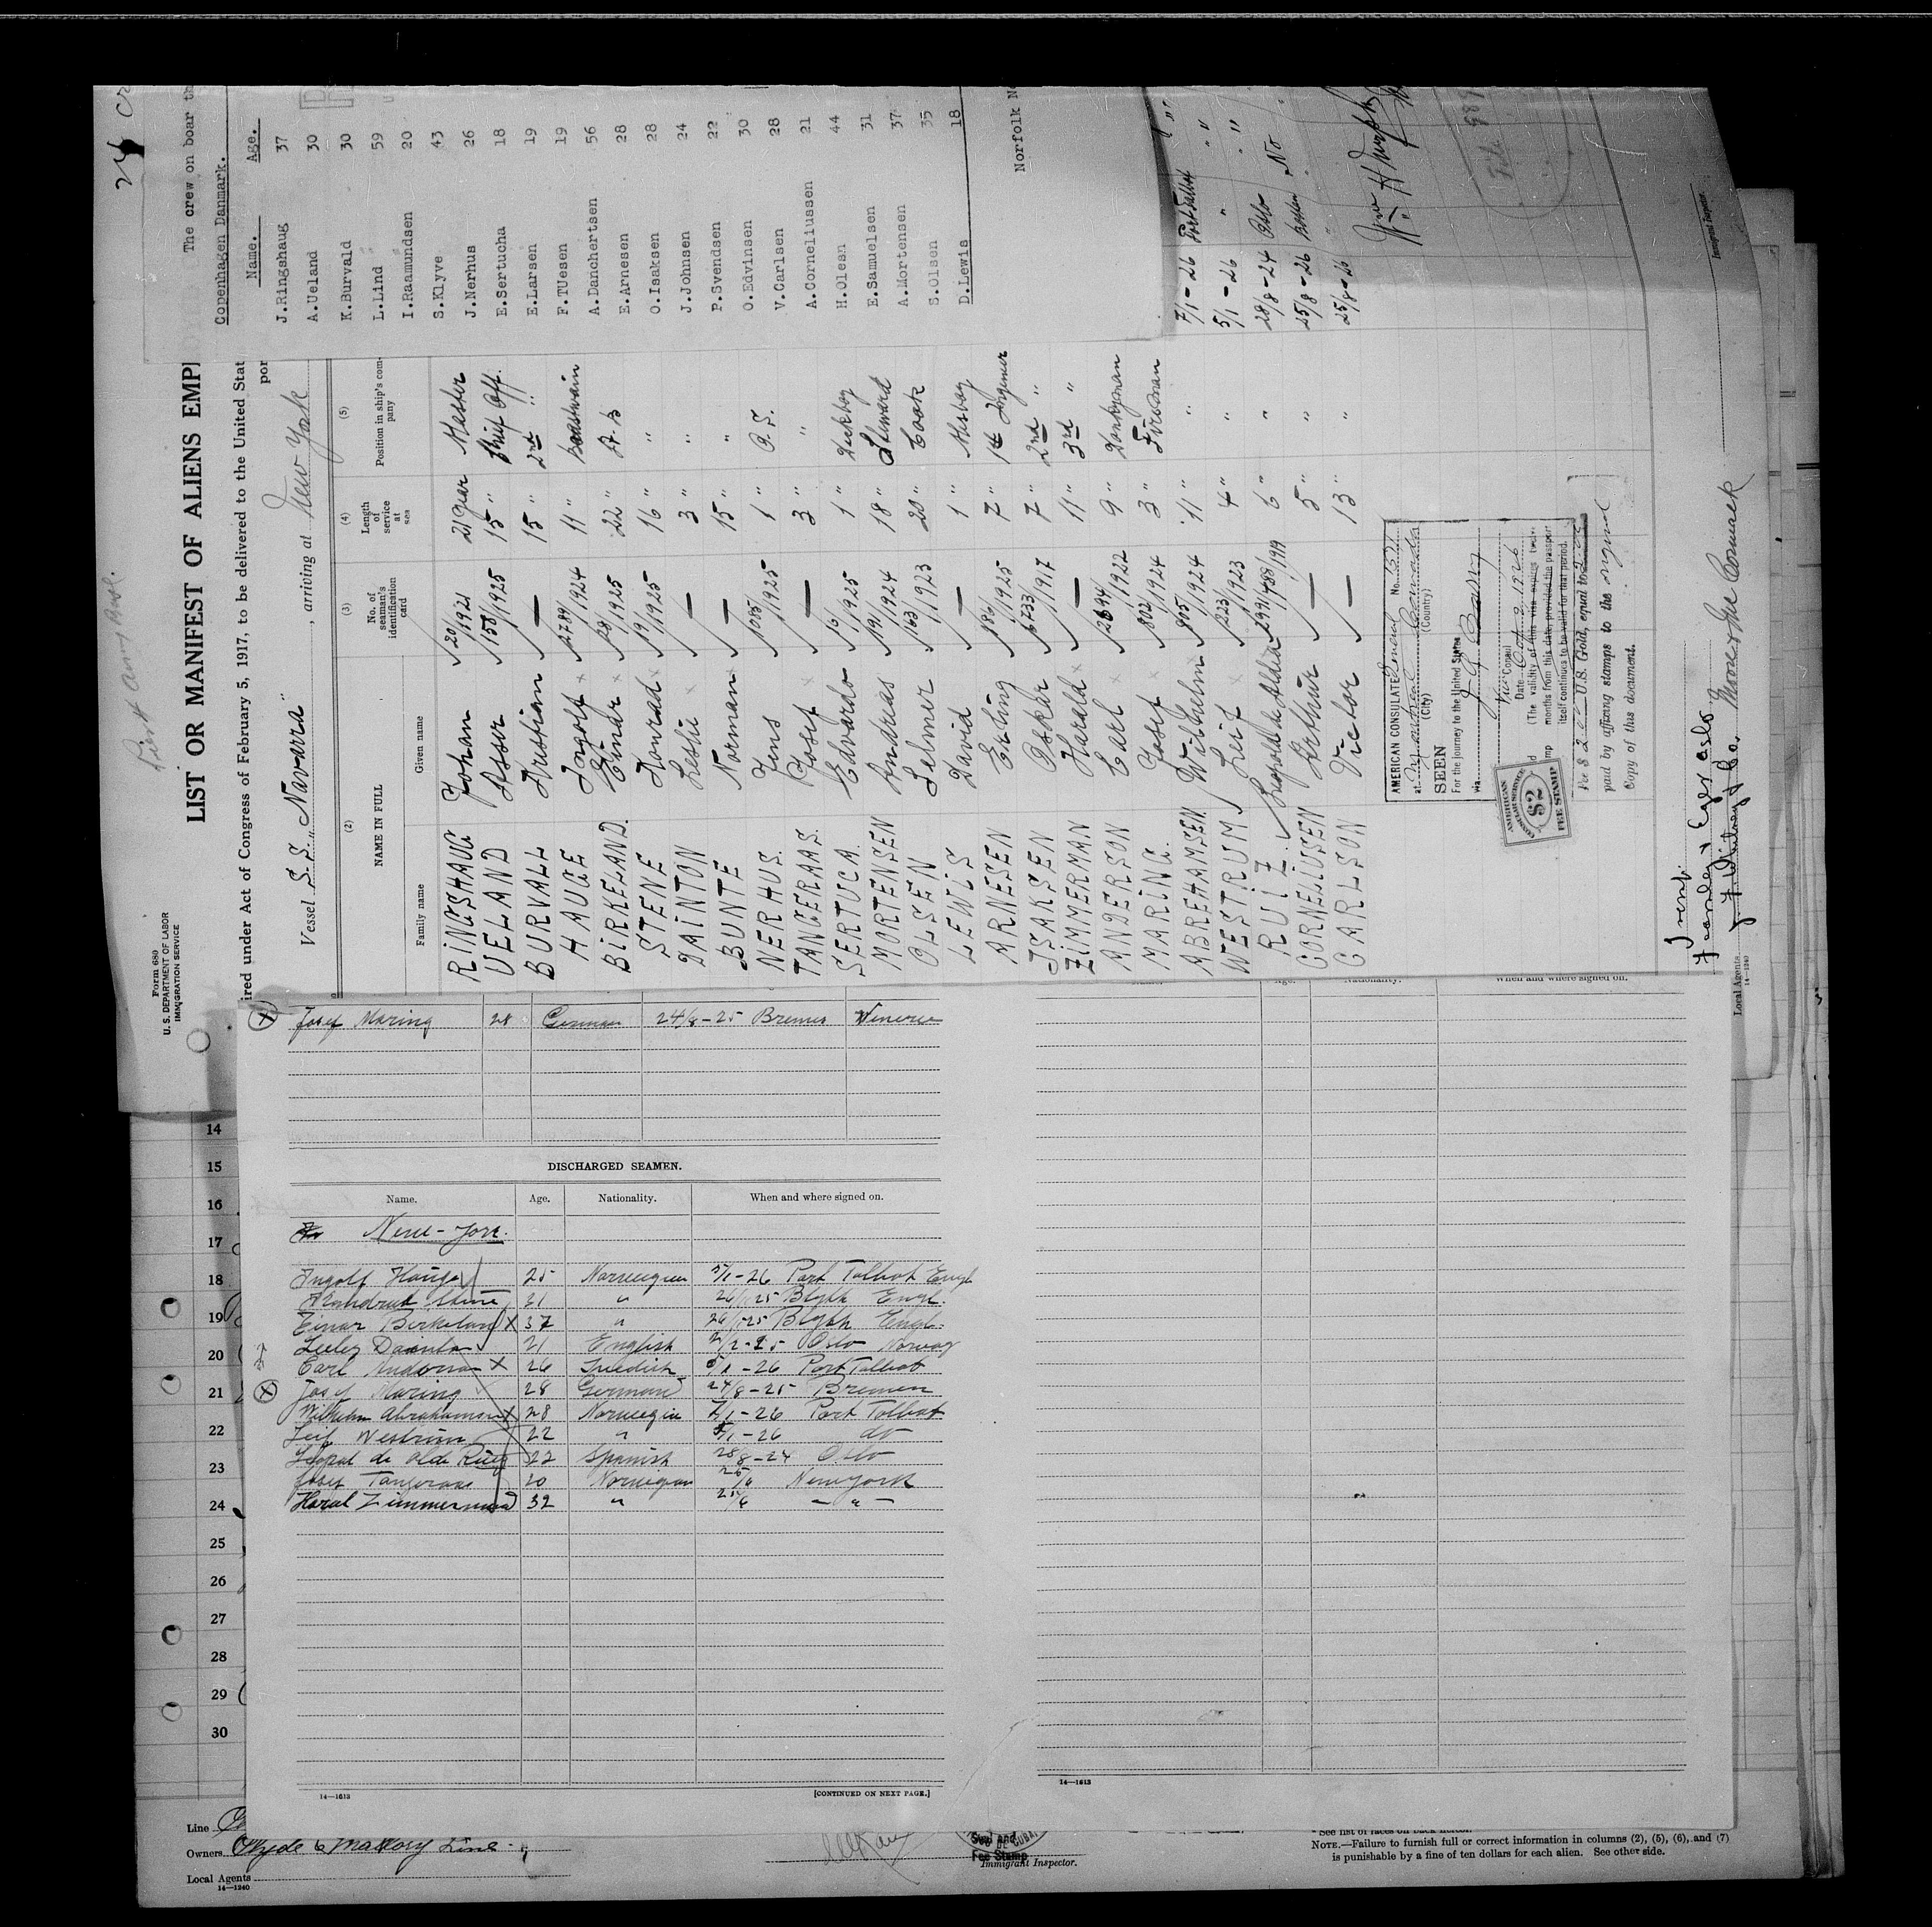 24
The crew on boar th
Copenhagen Danmark.
Name. Age.
J.Ringshaug 37
A.Ueland 30
K.Burvald 30
L.Lind 59
I.Raamundsen 20
S.Klyve 43
J.Nerhus 26
E.Sertucha 18
E.Larsen 19
F.TUesen 19
A.Danchertsen 56
E.Arnesen 28
O.Isaksen 28
J.Johnsen 24
P.Svendsen 22
O.Edvinsen 30
V.Carlsen 28
A.Corneliussen 21
H.Olean 44
E.Samuelsen 31
A.Mortensen 37
S.Olsen 35
D.Lewis 18
Norfolk
Form 680
U. S. DEPARTMENT OF LABOR
IMMIGRATION SERVICE
LIST OR MANIFEST OF ALIENS EMP
ired under Act of Congress of February 5, 1917, to be delivered to the United Stat
Vessel S.S. "Navarra", arriving at New York
por
(2) (3) (4) (5)
NAME IN FULL No. of seaman's identification card Length of service at sea Position in ship's company
Family name Given name
RINGSHAUG Johan 20/1921 21 year Master
UELAND Asser 158/1925 15 " Chief Off.
BURVALL Kristian — 15 " 2nd "
HAUGE Ingolf x 2789/1924 11 " Boatswain
BIRKELAND. Einar x 28/1925 22 " A.B
STENE Konrad x 19/1925 16 " "
DAINTON Leslie x — 3 " "
BUNTE Norman x — 15 " "
NERHUS. Jens 1085/1925 1 " O.S.
TANGERAAS. Josef x — 3 " "
SERTUCA Edvardo 16/1925 1 " Deckboy
MORTENSEN Andreas 191/1924 18 " Steward
OLSEN Selmer 163/1923 20 " Cook
LEWIS David — 1 " Messboy
ARNESEN Erling 186/1925 7 "
ISAKSEN Oskar 6733/1917 7 " 2nd "
ZIMMERMAN Harald x — 11 " 3rd "
ANDERSON Carl x 2694/1922 9 " Donkyman
MARING. Josef x 802/1924 3 " Fireman
ABREHAMSEN. Wilhelm x 805/1924 11 " "
WESTRUM Leif x 223/1923 4 " "
RUIZ 6 " "
CORNELIUSEN Arthur — 5 " "
CARLSON Victor — 13 " "
7/1-26 Port Talbot " "
5/1-26 " " "
28/8-24 Oslo No "
25/8-26 Boston
25/8-26
AMERICAN CONSULATE General No.
at Montreal Canada
(City) (Country)
SEEN
For the journey to the United States
via
Vice Consul
Date
(The validity of this visa expires twelve
months from this date, provided the passport
itself continues to be valid for that period.
AMERICAN
FOREIGN SERVICE
$2
FEE STAMP
U.S. Gold, equal to
paid by affixing stamps to the original
Copy of this document.
Fearnley & Eger Oslo
Moore & Mc Cormack
Local Agents
14—1240
Immigrant Inspector.
When and where signed on.
Josef Maring 28 German 24/8-25 Bremen
DISCHARGED SEAMEN.
Name. Age. Nationality. When and where signed on.
Ingolf Hauge 25 Norwegian 5/1-26 Port Talbot Engl
31 " 26/1 25 Blyth Engl.
Einar Birkeland x 37 " 26/1 25 Blyth Engl.
21 English Oslo Norway
Carl Anderson x 26 Swedish 5/1-26 Port Talbot
Josef Maring 28 German 24/8-25 Bremen
Wilhelm Abrahamsen x 28 Norwegian 7/1-26 Port Talbot
Leif Westrum 22 " 5/1-26 do
22 Spanish 28/8-24 Oslo
Josef Tangeraas 20 Norwegian 25/6 New York
Haral Zimmerman 32 " 25/6 — " —
14
15
16
17
18
19
20
21
22
23
24
25
26
27
28
29
30
14—1613
[CONTINUED ON NEXT PAGE.]
14—1613
Line
Owners Clyde & Mallory Line
Local Agents
14—1240
Seal and
Fee Stamp
Immigrant Inspector.
* See list of races on back hereof.
NOTE.—Failure to furnish full or correct information in columns (2), (5), (6), and (7)
is punishable by a fine of ten dollars for each alien. See other side.